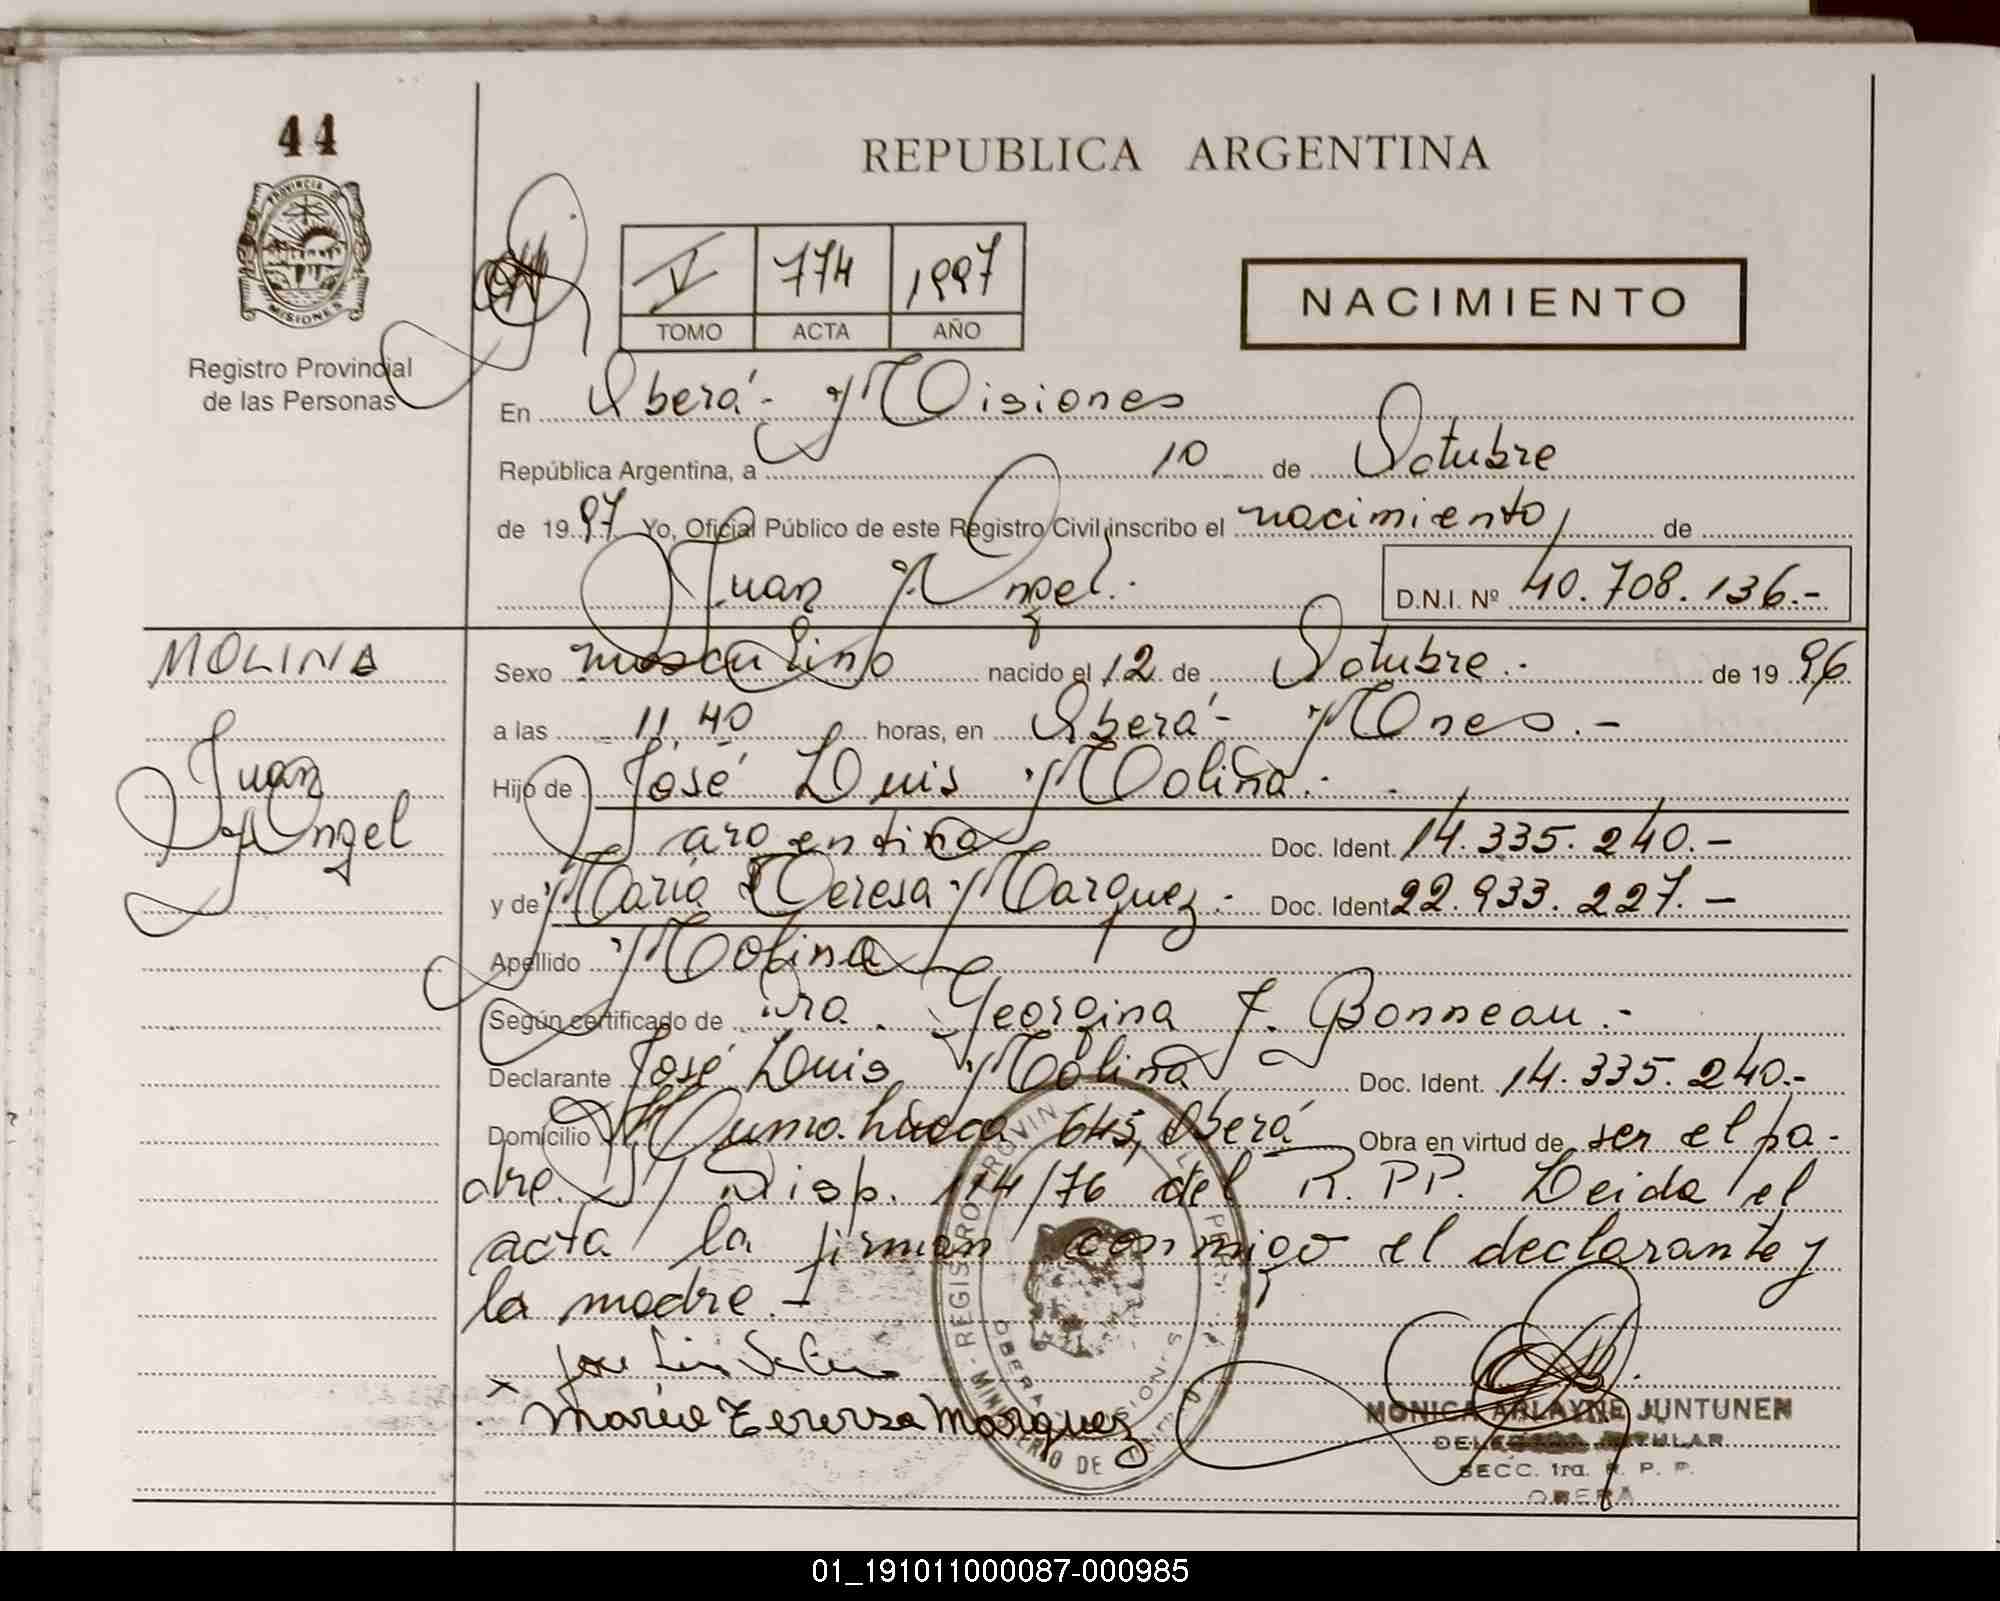 44
PROVINCIA DE
MISIONES
Registro Provincial
de las Personas
REPUBLICA ARGENTINA
V 774 1997
TOMO ACTA AÑO
NACIMIENTO
En Oberá - Misiones
República Argentina, a 10 de Octubre
de 1997 Yo, Oficial Público de este Registro Civil inscribo el nacimiento de
Juan Angel.
D.N.I. Nº 40.708.136.-
MOLINA
Juan
Angel
Sexo masculino nacido el 12 de Octubre.- de 1996
a las 11,40 horas, en Oberá - Mnes.-
Hijo de José Luis Molina.-
argentino Doc. Ident. 14.335.240.-
y de María Teresa Marquez.- Doc. Ident. 22.933.227.-
Apellido Molina
Según certificado de Dra. Georgina F. Bonneau.-
Declarante José Luis Molina Doc. Ident. 14.335.240.-
Domicilio Humahuaca 645, Oberá Obra en virtud de ser el pa-
dre. Disp. 114/76 del R.P.P. Leida el
acta la firman conmigo el declarante y
la madre.-
x
Maria Tereresa Marquez
REGISTRO PROVINCIAL
OBERA MISIONES
MINISTERIO DE
MONICA ARLAYNE JUNTUNEN
DELEGADA TITULAR
SECC. 1ra. R. P. P.
OBERA
01_191011000087-000985